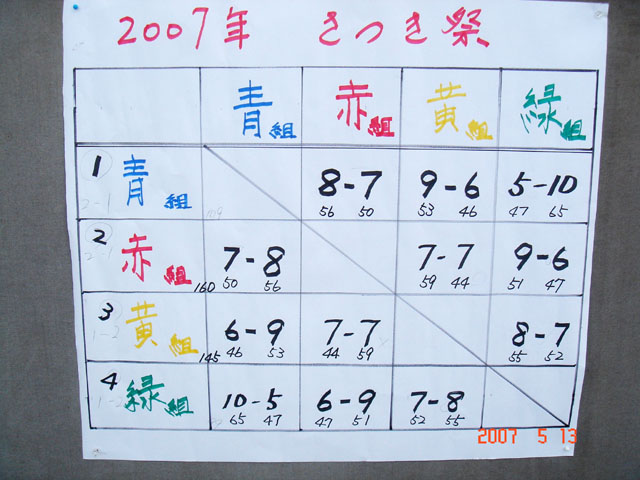 2007年 さつき祭
青組 赤組 黄組 緑組
1 青組 8-7 9-6 5-10
56 50 53 46 47 65
2 赤組 7-8 7-7 9-6
160 50 56 59 44 51 47
3 黄組 6-9 7-7 8-7
145 46 53 44 59 55 52
4 緑組 10-5 6-9 7-8
65 47 47 51 52 55
2007 5 13